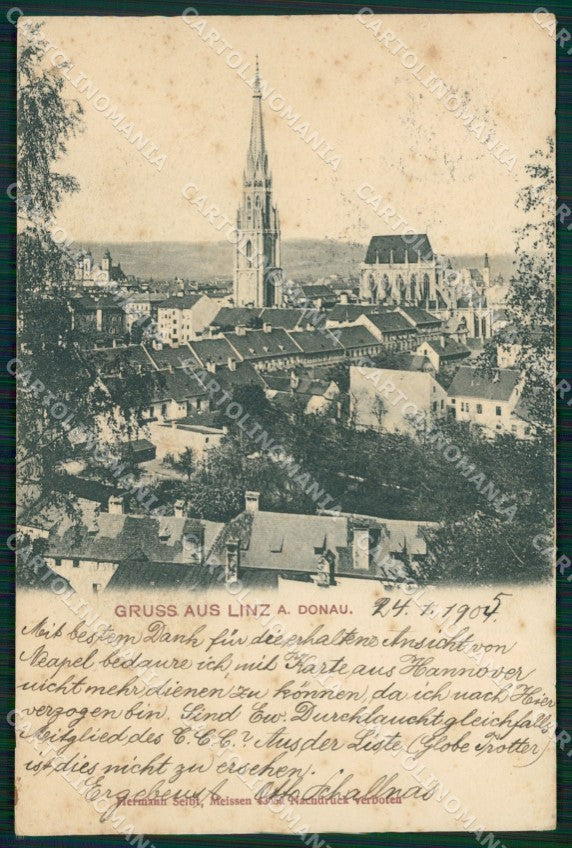 GRUSS AUS LINZ A. DONAU. 24. 1. 1905
Mit bestem Dank für die erhaltene Ansicht von
Neapel bedaure ich, mit Karte aus Hannover
nicht mehr dienen zu können, da ich nach Hier
verzogen bin. Sind Ew. Durchlaucht gleichfalls
Mitglied des C.C.C.? Aus der Liste (Globe Trotter)
ist dies nicht zu ersehen.
Ergebenst Otto Schallnas
Hermann Seibt, Meissen Nachdruck verboten
CARTOLINOMANIA